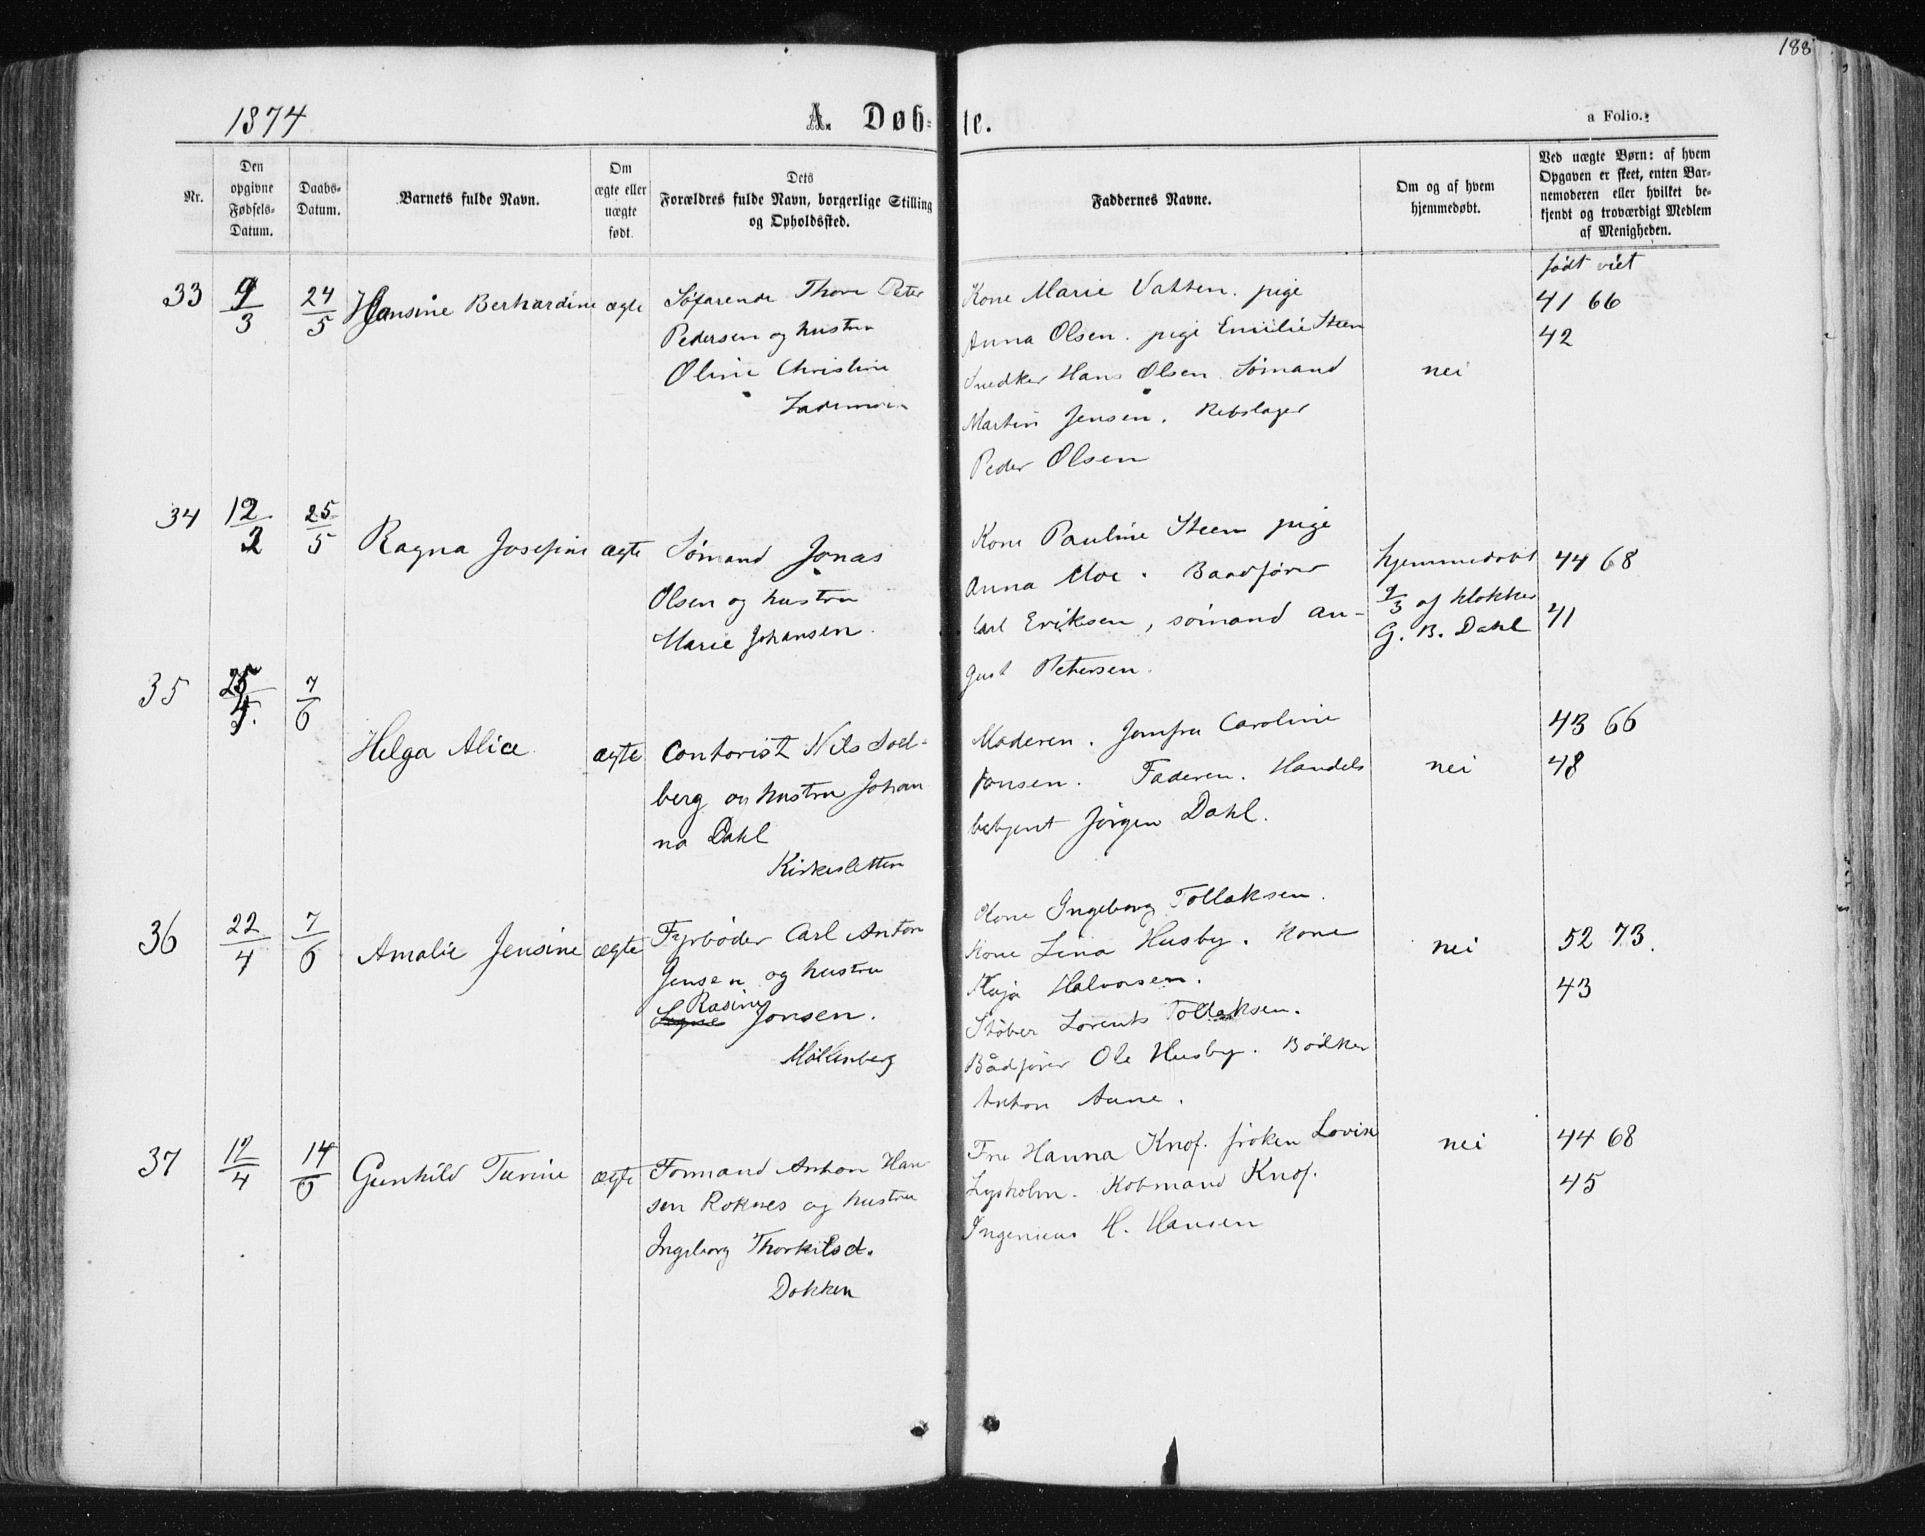 188
1874
A. Døb-
te.
a Folio.
Nr.
Den opgivne Fødsels-Datum.
Daabs-Datum.
Barnets fulde Navn.
Om ægte eller uægte født.
Dets Forældres fulde Navn, borgerlige Stilling og Opholdssted.
Faddernes Navne.
Om og af hvem hjemmedøbt.
Ved uægte Børn: af hvem Opgaven er skeet, enten Barnemoderen eller hvilket bekjendt og troværdigt Medlem af Menigheden.
født viet
33 9/3 24/5 Hansine Berhardine ægte
Søfarende Thore Peter
Pedersen og hustru
Oline Christine
Lademoen
Kone Marie Vatten. pige
Anna Olsen. pige Emilie Steen
Snedker Hans Olsen. Sømand
Martin Jensen. Rebslager
Peder Olsen
nei
41 66
42
34 12/2 25/5 Ragna Josefine ægte
Sømand Jonas
Olsen og hustru
Marie Johansen.
Kone Pauline Steen pige
Anna Moe. Baadfører
Carl Eriksen, sømand Au-
gust Petersen.
hjemmedøbt
9/3 af klokker
G. B. Dahl
44 68
41
35 25/4 7/6
Helga Alice. ægte
Contorist Nils Sol-
berg og hustru Johan
na Dahl
Kirkesletten
Moderen. Jomfru Caroline
Jonsen. Faderen. Handels
betjent Jørgen Dahl.
nei
43 66
48
36 22/4 7/6 Amalie Jensine ægte
Fyrbøder Carl Anton
Jensen og hustru
Rasine Jonsen.
Møllenberg
Kone Ingeborg Tollaksen.
Kone Lina Husby. Kone
Kaja Halvorsen.
Støber Lorents Tollaksen.
Bådfører Ole Husby. Bødker
Anton Aune.
nei
52 73.
43
37 12/4 14/6 Gunhild Turine ægte
Formand Anton Han
sen Roknes og hustru
Ingeborg Thorkilsd.
Dokken
Fru Hanna Knof. frøken Lovise
Lysholm. Kobmand Knof.
Ingenieur H. Hansen
nei
44 68
45